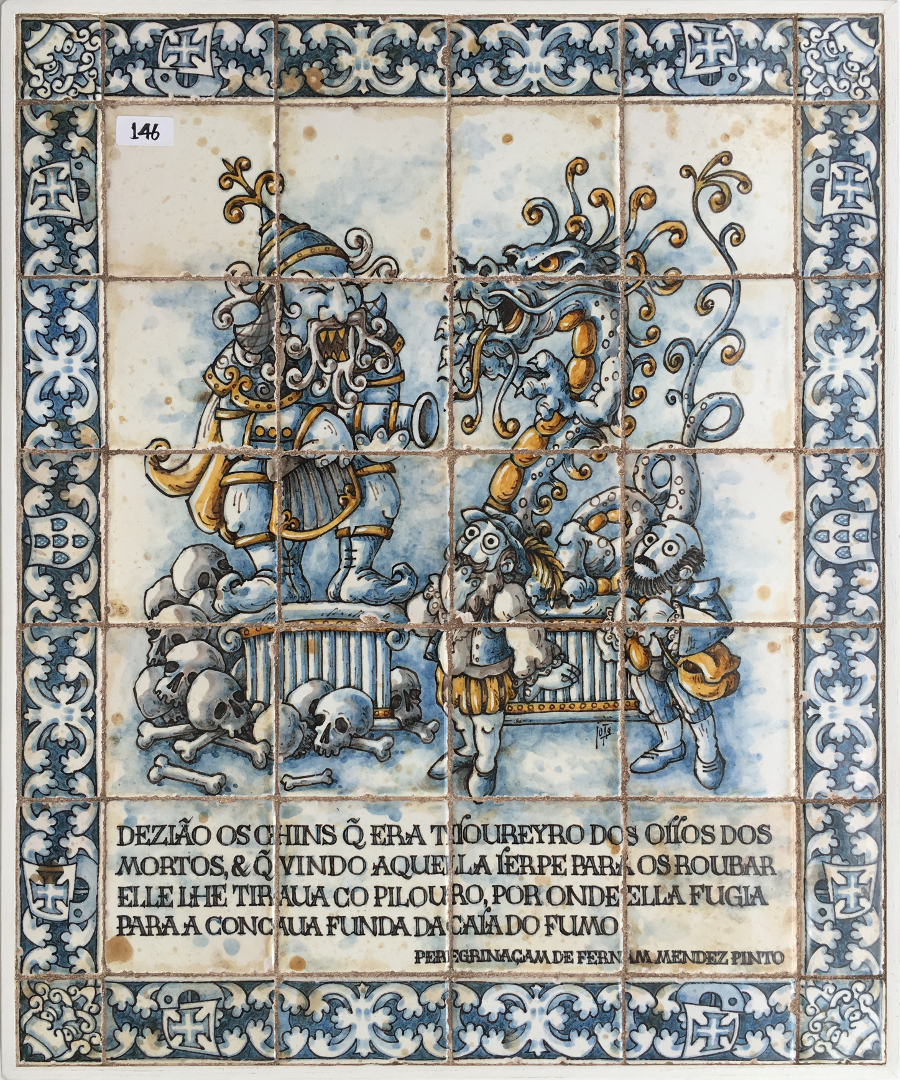 146
DEZIÃO OS CHINS Q̃ ERA TħOUREYRO DOS OſſOS DOS
MORTOS, & Q̃ VINDO AQUELLA ſERPE PARA OS ROUBAR
ELLE LHE TIRAUA CO PILOURO, POR ONDE ELLA FUGIA
PARA A CONCAUA FUNDA DA CAſA DO FUMO
PEREGRINAÇAM DE FERNAM MENDEZ PINTO